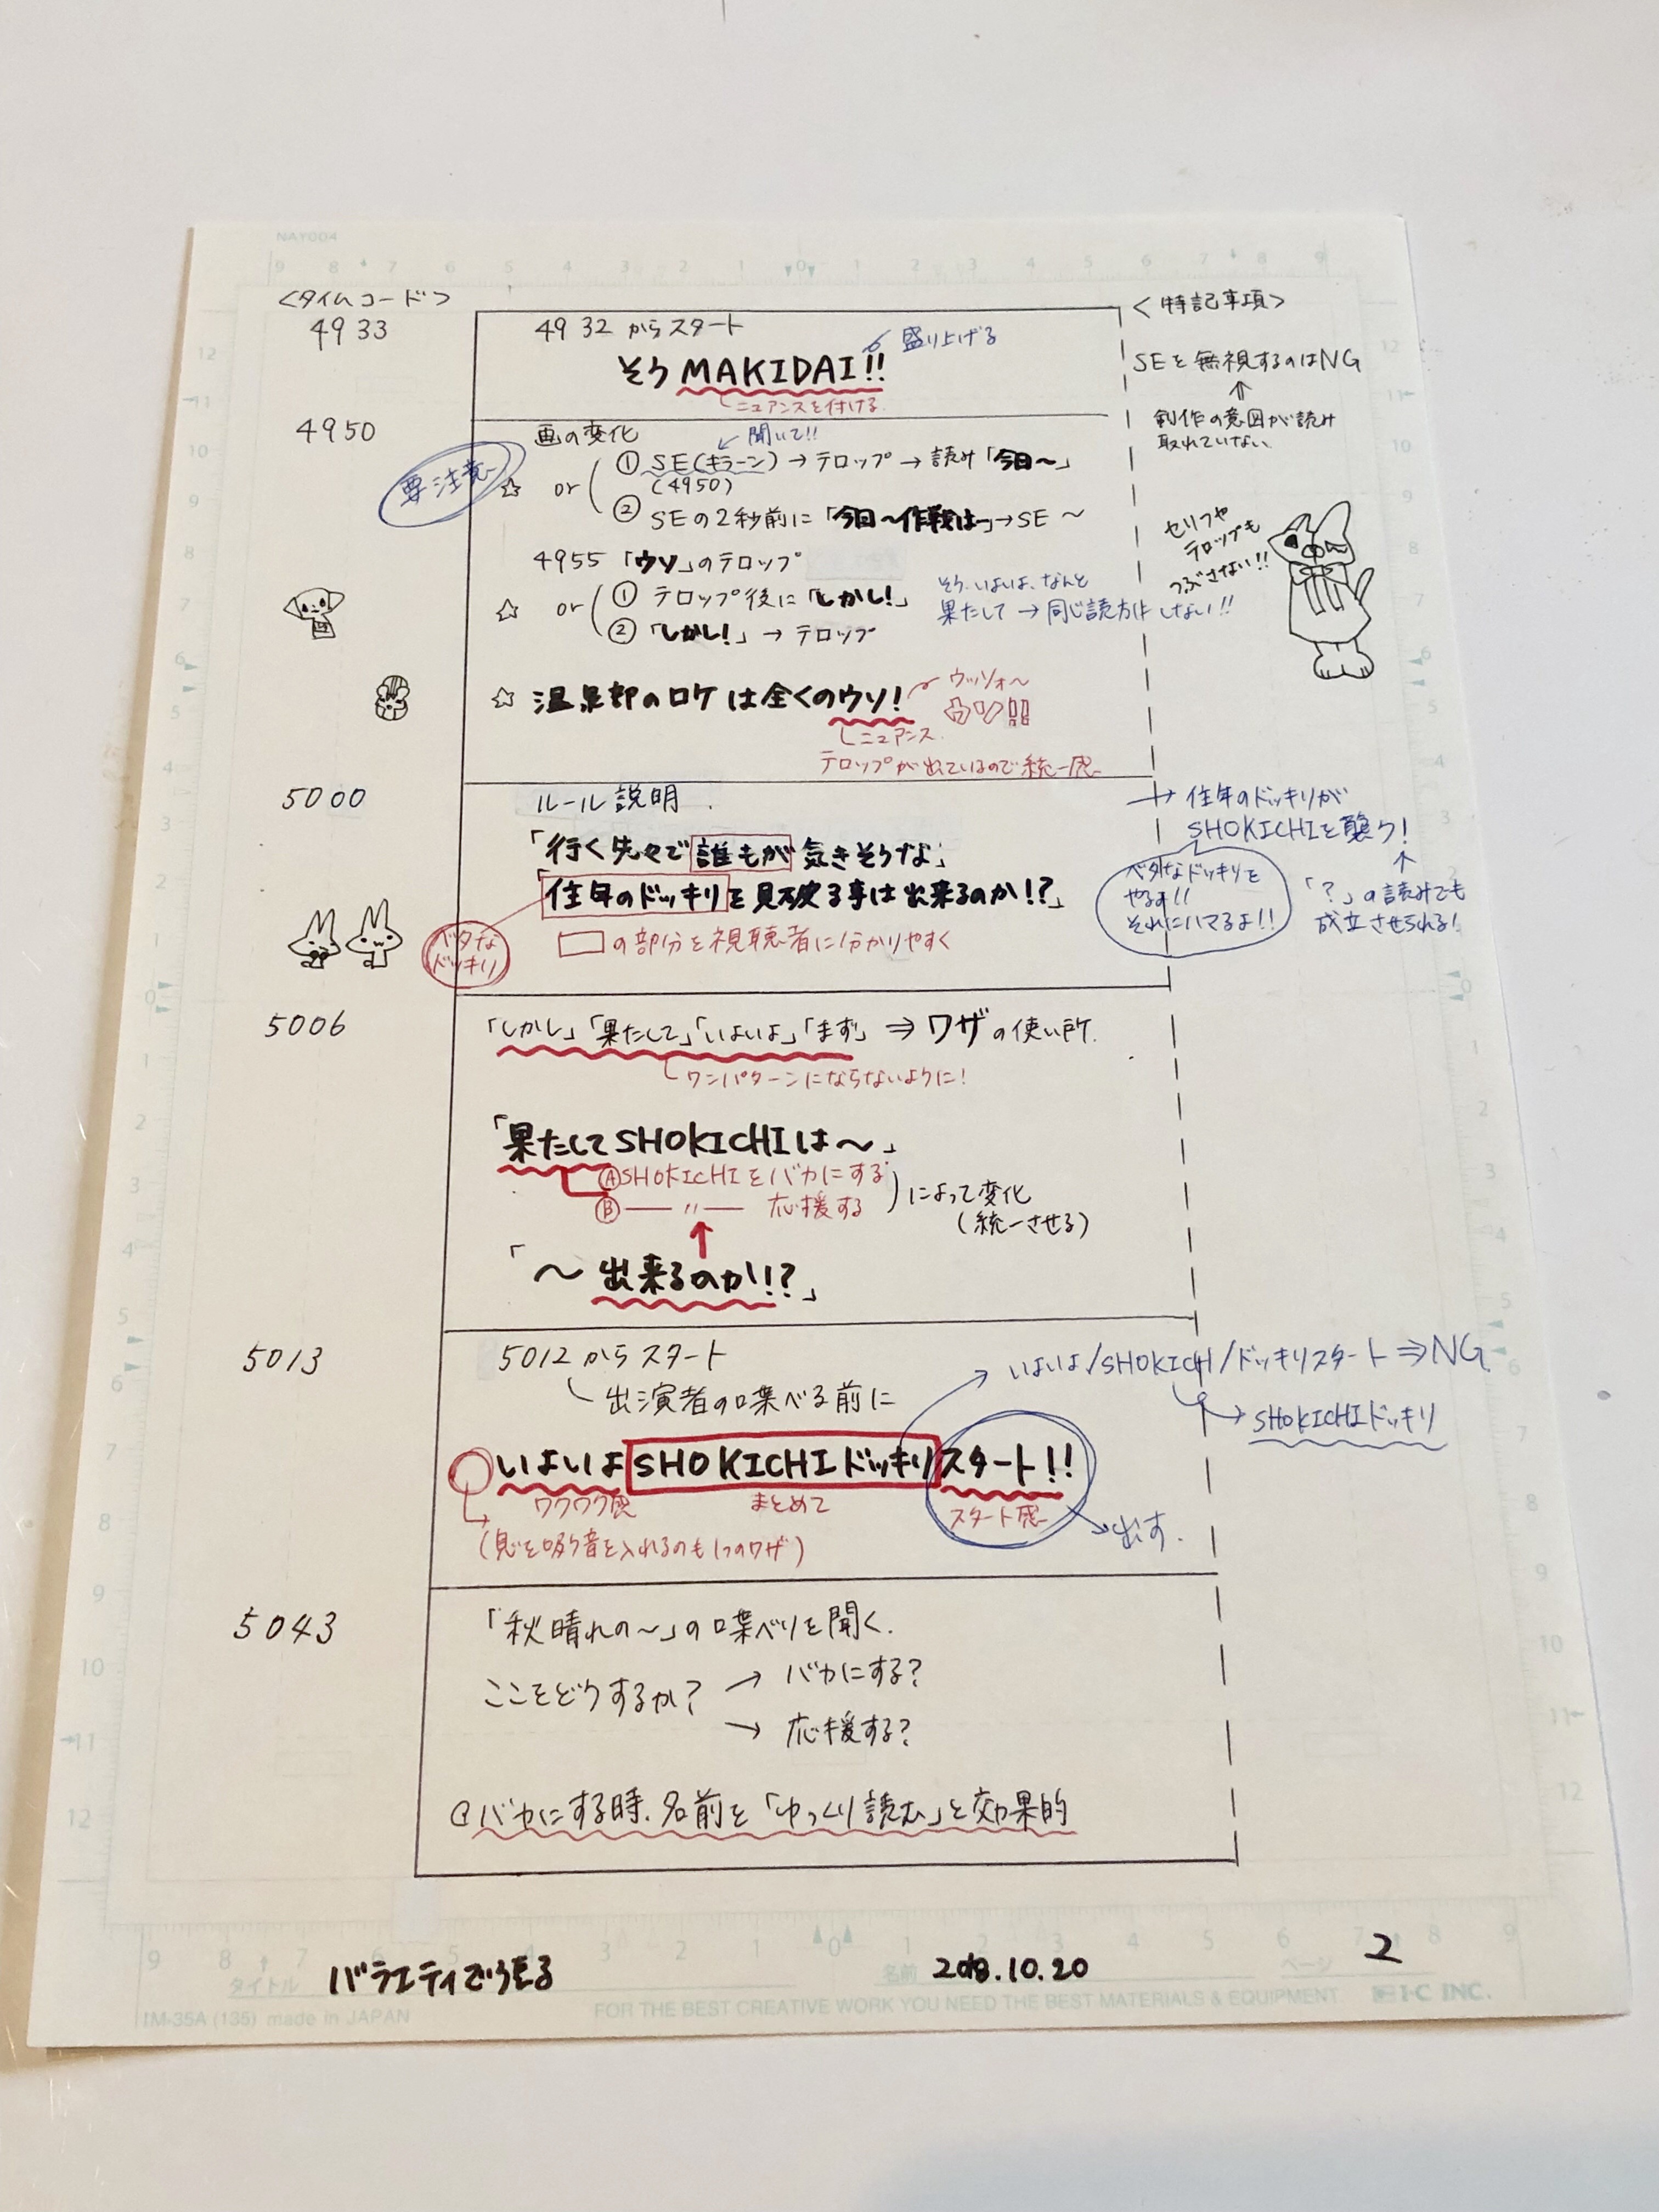 NAY004
<タイムコード>
<特記事項>
4933
4932 からスタート
そう MAKIDAI!!
盛り上げる
ニュアンスを付ける
SEを無視するのはNG
制作の意図が読み
取れていない
4950
要注意
画の変化
聞いて!!
☆ or
① SE(キラーン)→テロップ→読み「今日〜」
(4950)
② SEの2秒前に「今日〜作戦は〜」→SE〜
セリフや
テロップも
つぶさない!!
4955「ウソ」のテロップ
☆ or
① テロップ後に「しかし!」
② 「しかし!」→テロップ
そう、いよいよ、なんと
果たして→同じ読方はしない!!
☆ 温泉部のロケは全くのウソ!
ウッソォ〜
ウソ!!
ニュアンス
テロップが出ているので統一感
5000
ルール説明
「行く先々で誰もが気きそうな」
「往年のドッキリを見破る事は出来るのか!?」
ベタな
ドッキリ
の部分を視聴者に分かりやすく
→往年のドッキリが
SHOKICHIを襲う!
ベタなドッキリを
やるよ!!
それにハマるよ!!
「?」の読みでも
成立させられる!
5006
「しかし」「果たして」「いよいよ」「まず」⇒ワザの使い所.
ワンパターンにならないように!
「果たしてSHOKICHIは〜」
Ⓐ SHOKICHIをバカにする
Ⓑ 〃 応援する
によって変化
(統一させる)
「〜 出来るのか!!?」
5013
5012からスタート
出演者の喋べる前に
いよいよ/SHOKICHI/ドッキリスタート⇒NG
SHOKICHIドッキリ
いよいよSHOKICHIドッキリスタート!!
ワクワク感
まとめて
スタート感
出す.
(息を吸う音を入れるのも1つのワザ)
5043
「秋晴れの〜」の喋べりを聞く.
ここをどうするか?
→ バカにする?
→ 応援する?
@バカにする時、名前を「ゆっくり読む」と効果的
タイトル
バラエティで
名前
2018.10.20
ページ
2
IM-35A (135) made in JAPAN
FOR THE BEST CREATIVE WORK YOU NEED THE BEST MATERIALS & EQUIPMENT
I·C INC.